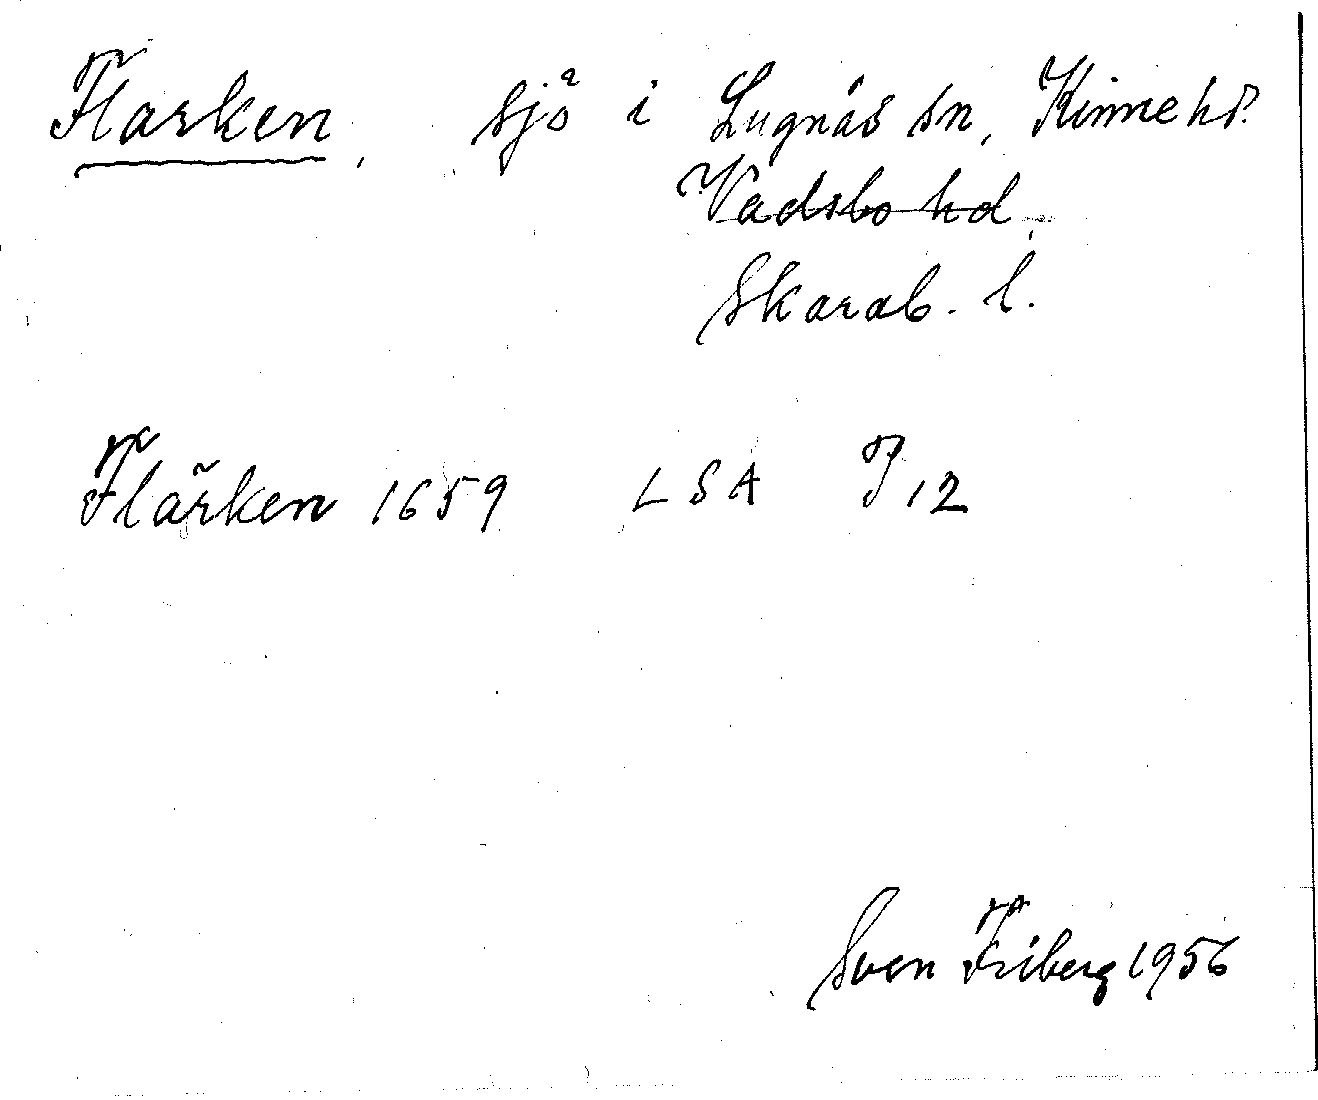 Flarken, sjö i Lugnås sn, Kinne hd.
Vadsbo hd,
Skarab. l.
Flärken 1659 LSA P 12
Sven Friberg 1956